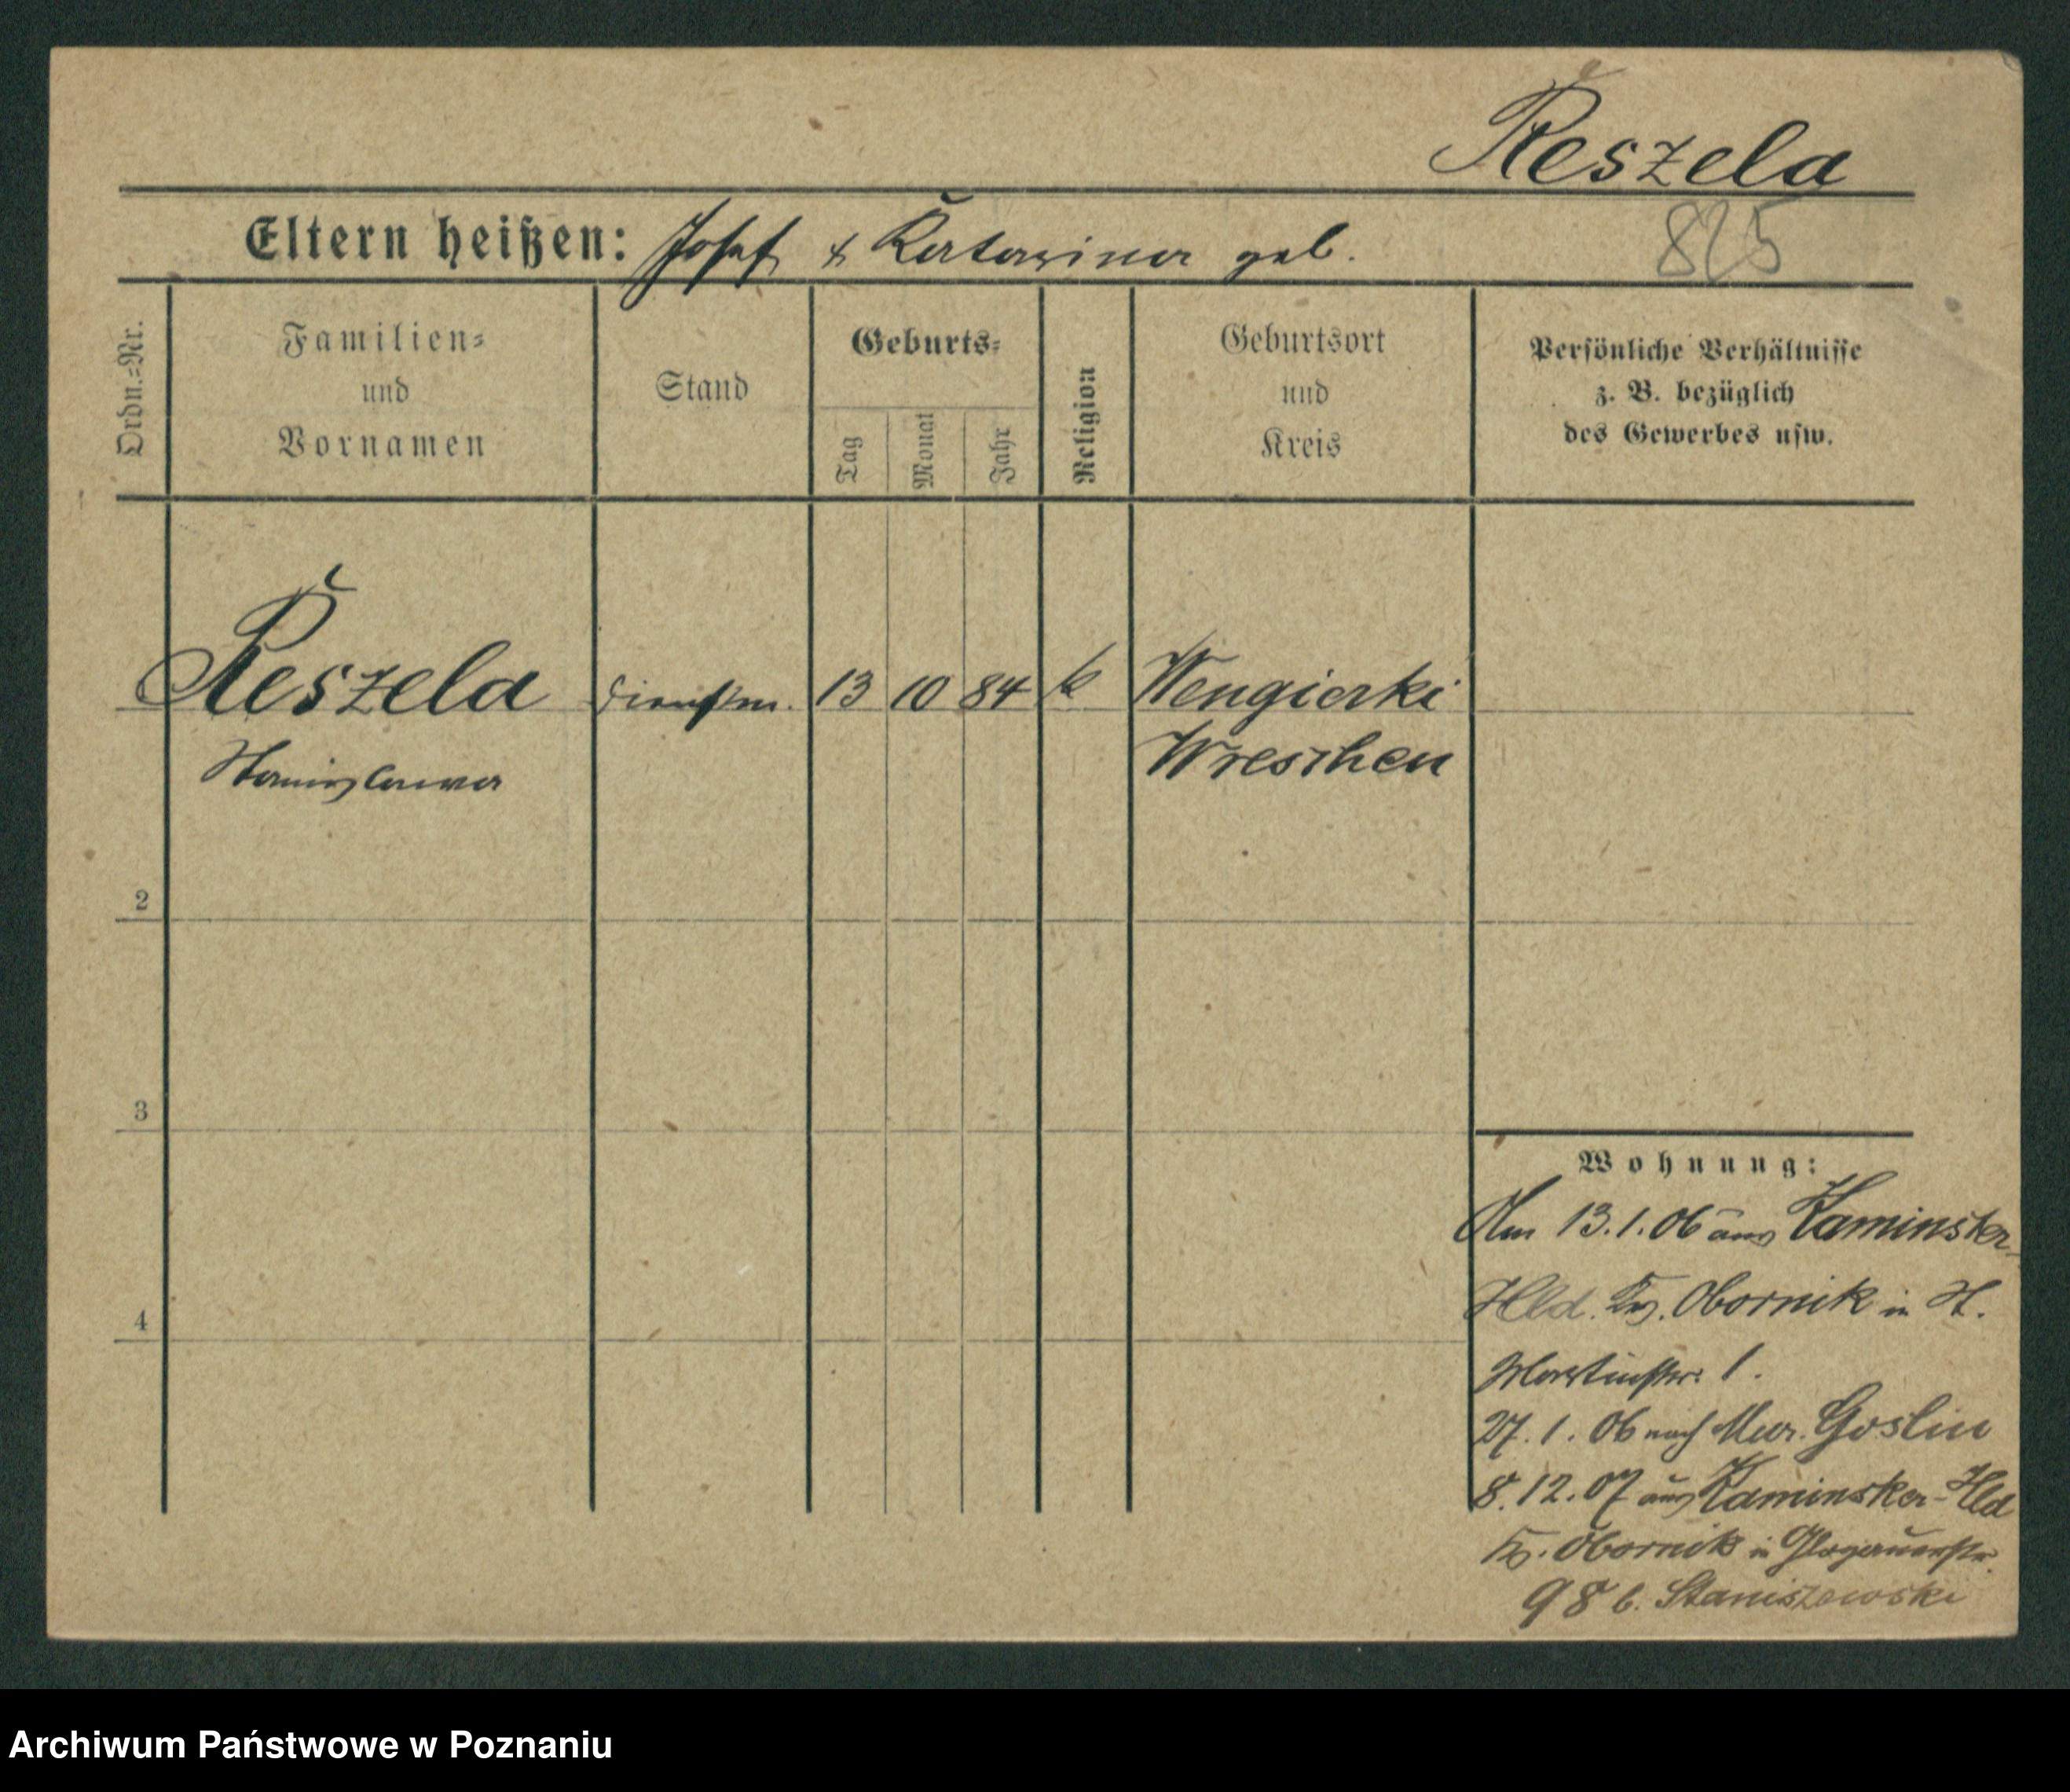 Reszela
Eltern heißen: Josef & Katarzina geb.
825
Ordn.=Nr.
Familien=
und
Vornamen
Stand
Geburts=
Tag
Monat
Jahr
Religion
Geburtsort
und
Kreis
Persönliche Verhältnisse
z. B. bezüglich
des Gewerbes usw.
Reszela Dienstm. 13 10 84 k Wengierki
Stanislawa Wreschen
2
3
4
Wohnung:
Am 13.1.06 aus Kaminsker-
Hld. Kr. Obornik in St.
Martinstr. 1.
27. 1. 06 nach Mur. Goslin
8. 12. 07 aus Kaminsker-Hld
Kr. Obornik in Glogauerstr.
98 b. Staniszewski
Archiwum Państwowe w Poznaniu